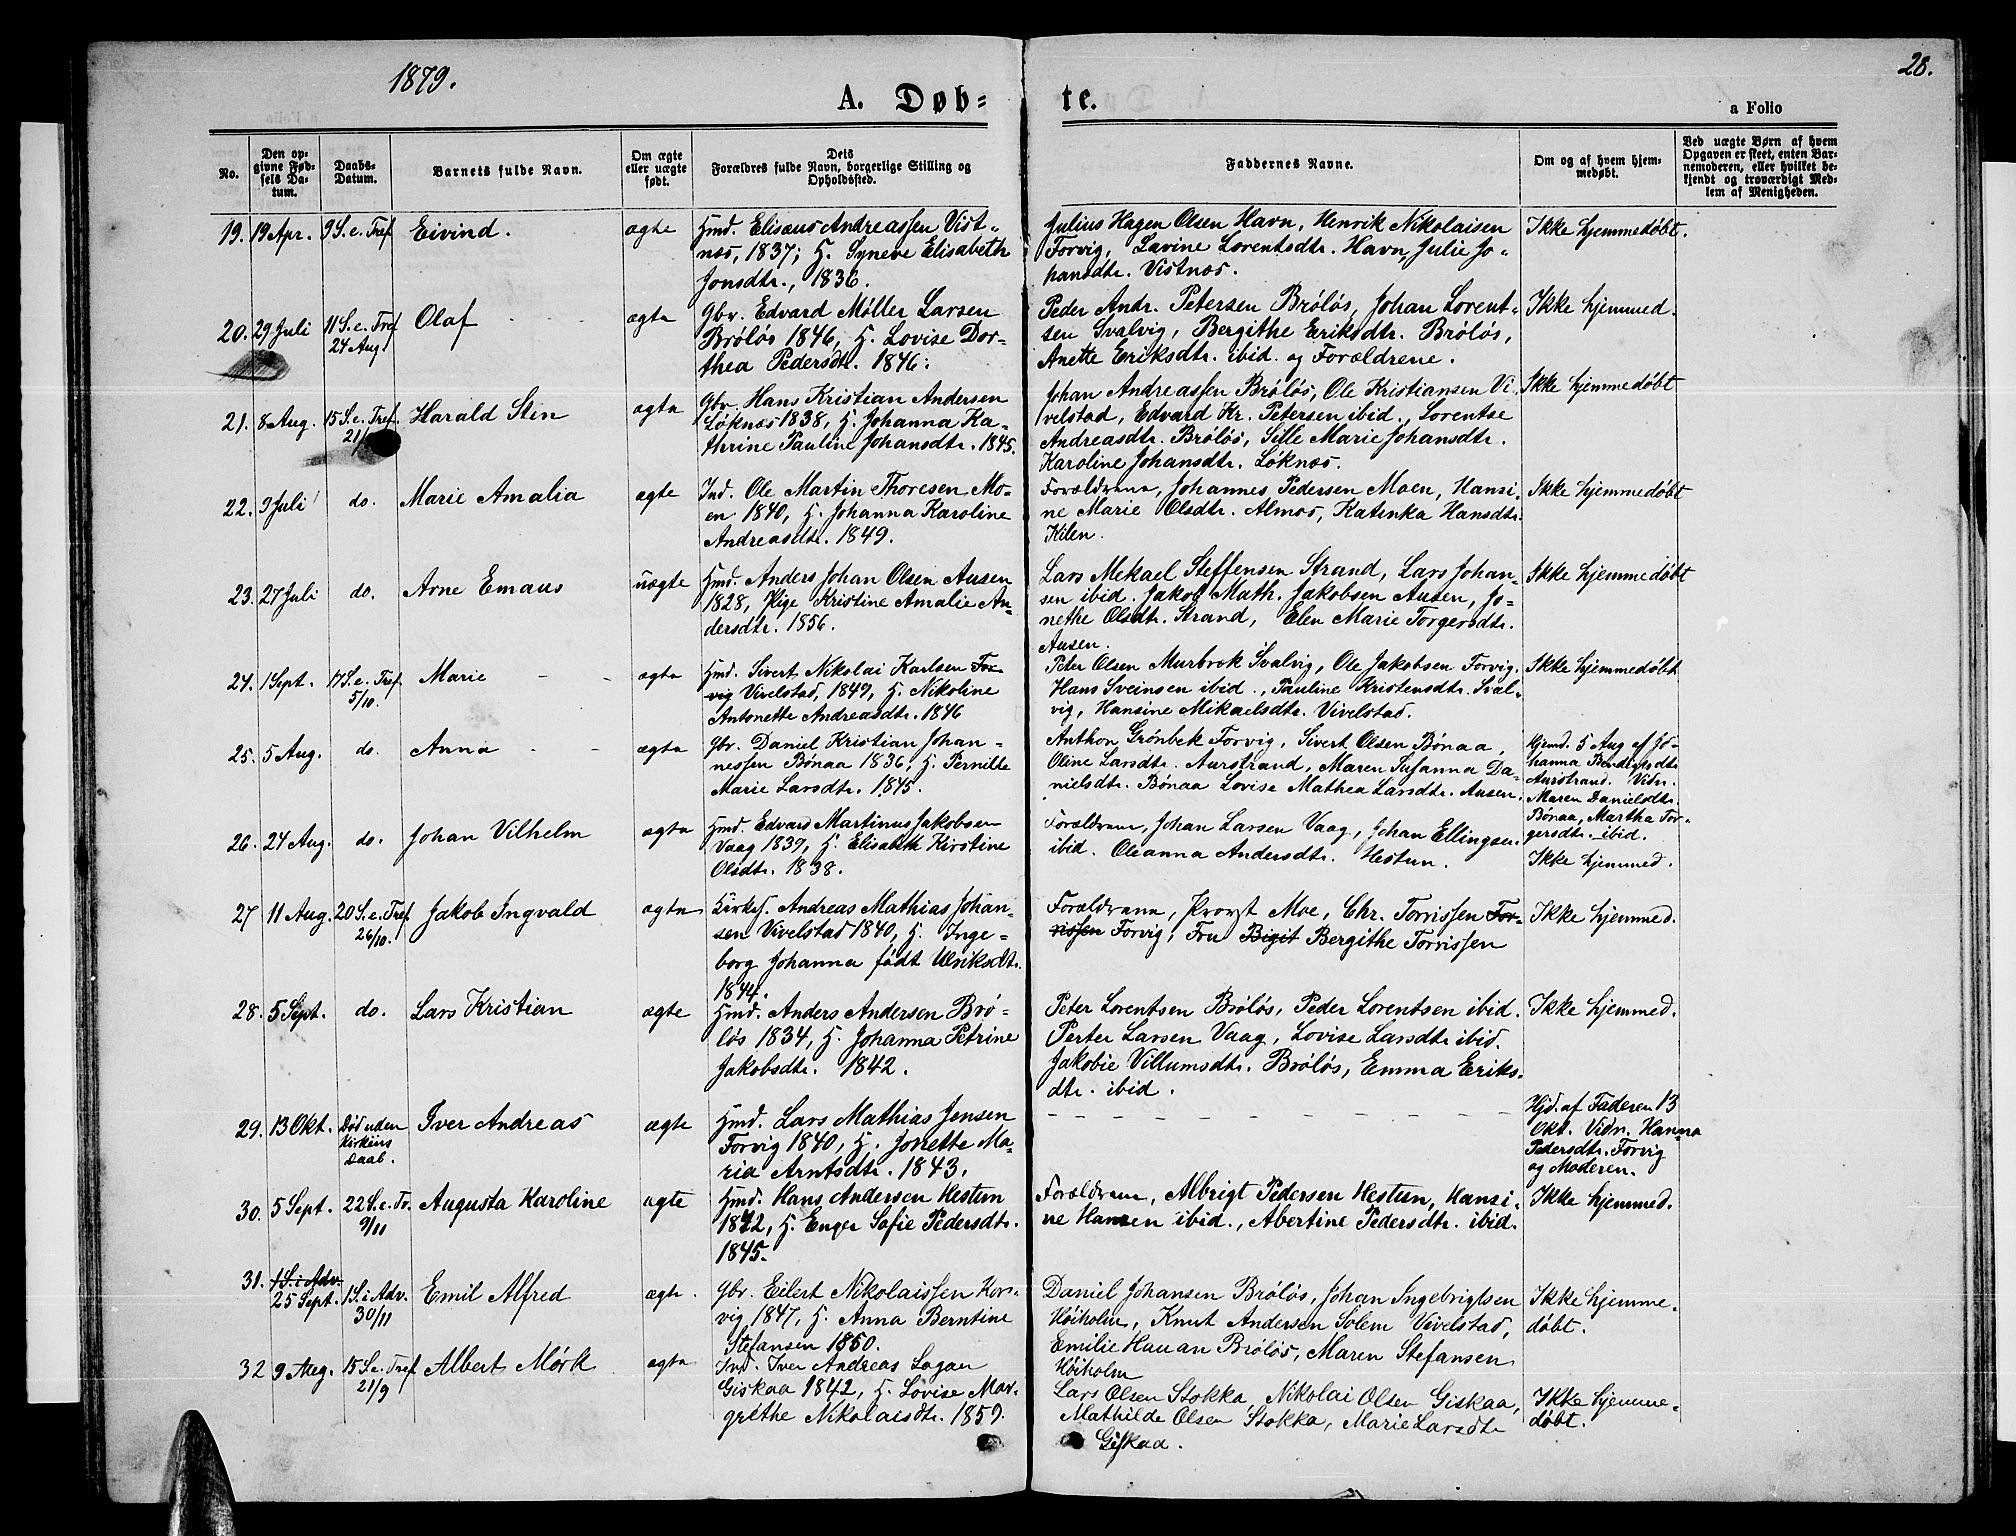 1879.
28.
A. Døb=
te.
a Folio
No.
Den op=
givne Fød=
sels Da=
tum.
Daabs=
Datum.
Barnets fulde Navn.
Om ægte
eller uægte
født.
Dets
Forældres fulde Navn, borgerlige Stilling og
Opholdssted.
Faddernes Navne.
Om og af hvem hjem=
medøbt.
Ved uægte Børn af hvem
Opgaven er skeet, enten Bar=
nemoderen, eller hvilket be=
kjendt og troværdigt Med=
lem af Menigheden.
19. 19 Apr. 9 S. e. Tref. Eivind. ægte
Hmd. Elisæus Andreassen Vist=
næs, 1837; H. Syneve Elisabeth
Jonsdtr., 1836.
Julius Hagen Olsen Havn, Henrik Nikolaisen
Forvig, Lavine Lorentsdtr. Havn, Julie Jo=
hansdtr. Vistnæs.
Ikke hjemmedøbt.
20. 29 Juli 11 S. e. Tref. Olaf ægte
24 Aug.
Gbr. Edvard Møller Larsen
Bröløs 1846, H. Lovise Dor=
thea Pedersdtr. 1846.
Peder Andr. Petersen Bröløs, Johan Lorent=
sen Svalvig, Bergithe Eriksdtr. Bröløs,
Anette Eriksdtr. ibid. og Forældrene.
Ikke hjemmed.
21. 8 Aug. 15 S. e. Tref. Harald Stin ægte
21/
Gbr. Hans Kristian Andersen
Løknæs 1838, H. Johanna Ka=
thrine Pauline Johansdtr. 1845.
Johan Andreassen Bröløs, Ole Kristiansen Vi=
velstad, Edvard Kr. Petersen ibid., Lorentse
Andreasdtr. Bröløs, Sille Marie Johansdtr.
Karoline Johansdtr. Løknæs.
Ikke hjemmedøbt
22. 9 Juli do. Marie Amalia ægte
Ind. Ole Martin Thoresen Mo=
en 1840, H. Johanna Karoline
Andreasdtr. 1849.
Forældrene, Johannes Pedersen Moen, Hansi=
ne Marie Olsdtr. Almos, Katinka Hansdtr.
Kilen.
Ikke hjemmedøbt
23. 27 Juli do. Arne Emaus uægte
Hmd. Anders Johan Olsen Ausen
1828, Pige Kristine Amalie An=
dersdtr. 1856.
Lars Mekael Steffensen Strand, Lars Johan=
sen ibid. Jakob Math. Jakobsen Ausen, Jo=
nethe Olsdtr. Strand, Elen Marie Torgersdtr.
Ausen.
Ikke hjemmedøbt
24. 1 Sept. 17 S. e. Tref. Marie ægte
5/10.
Hmd. Sivert Nikolai Karlsen For
vig Vivelstad, 1849, H. Nikoline
Antonette Andreasdtr. 1846
Peter Olsen Murbrek Svalvig, Ole Jakobsen Forvig.
Hans Sveinsen ibid., Pauline Kristensdtr. Sval=
vig, Hansine Mikaelsdtr. Vivelstad.
Ikke hjemmedøbt
25. 5 Aug. do. Anna ægte
Gbr. Daniel Kristian Johan=
nessen Bönaa 1836, H. Pernille
Marie Larsdtr. 1845.
Anthon Grönbek Forvig, Sivert Olsen Bönaa,
Oline Larsdtr. Aurstrand, Maren Susanna Da=
nielsdtr. Bönaa Lovise Mathea Larsdtr. Ausen.
Hjemd. 5 Aug af Jo=
hanna Bendigtsdtr.
Aurstrand. Vidn.
Maren Danielsdtr.
Bönaa, Martha Tor=
gersdtr. ibid.
26. 24 Aug. do. Johan Vilhelm ægte
Hmd. Edvard Martinus Jakobsen
Vaag 1839, H. Elisabeth Kirstine
Olsdtr. 1838.
Forældrene, Johan Larsen Vaag, Johan Ellingsen
ibid. Oleanna Andersdtr. Hestun.
Ikke hjemmed.
27 11 Aug. 20 S. e. Tref. Jakob Ingvald ægte
26/10.
Kirkes. Andreas Mathias Johan=
sen Vivelstad 1840, H. Inge=
borg Johanna født Ulriksdtr.
1844.
Forældrene, Provst Moe, Chr. Torrissen Tor=
rissen Forvig, Fru Bigit Bergithe Torrissen
Ikke hjemmed.
28. 5 Sept. do. Lars Kristian ægte
Hmd. Anders Andersen Brö=
løs 1834, H. Johanna Petrine
Jakobsdtr. 1842.
Peter Lorentsen Bröløs, Peder Lorentsen ibid.
Perter Larsen Vaag, Lovise Larsdtr ibid.
Jakobie Villumsdtr. Bröløs, Emma Eriks=
dtr. ibid.
Ikke hjemmed.
29. 13 Okt. Død uden Iver Andreas ægte
Kirkens
Daab.
Hmd. Lars Mathias Jensen
Forvig 1840, H. Jonette Ma=
ria Arntsdtr. 1843.
Hjd. af Faderen 13
Okt. Vidn. Hanna
Pedersdtr. Forvig
og Moderen.
30. 5 Sept. 22 S. e. Tr. Augusta Karoline ægte
9/11
Hmd. Hans Andersen Hestun
1842, H. Enger Sofie Pedersdtr.
1845.
Forældrene, Albrigt Pedersen Hestun, Hansi=
ne Hansen ibid., Abertine Pedersdtr. ibid.
Ikke hjemmed.
31. 1 S. i Adv.
25 Sept. 1 S. i Adv. Emil Alfred ægte.
30/11
Gbr. Eilert Nikolaissen Kors=
vig 1847, H. Anna Berntine
Stefansen 1850.
Daniel Johansen Bröløs, Johan Ingebrigtsen
Høiholm, Knut Andersen Solem Vivelstad,
Emilie Hauan Bröløs, Maren Stefansen
Høiholm
Ikke hjemme=
døbt.
32 9 Aug. 15 S. e. Tref. Albert Mörk ægte
21/9
Ind. Iver Andreas Sagan
Giskaa 1842, H. Lovise Mar=
grethe Nikolaisdtr. 1859.
Lars Olsen Stokka, Nikolai Olsen Giskaa,
Mathilde Olsen Stokka, Marie Larsdtr
Giskaa.
Ikke hjemme=
døbt.